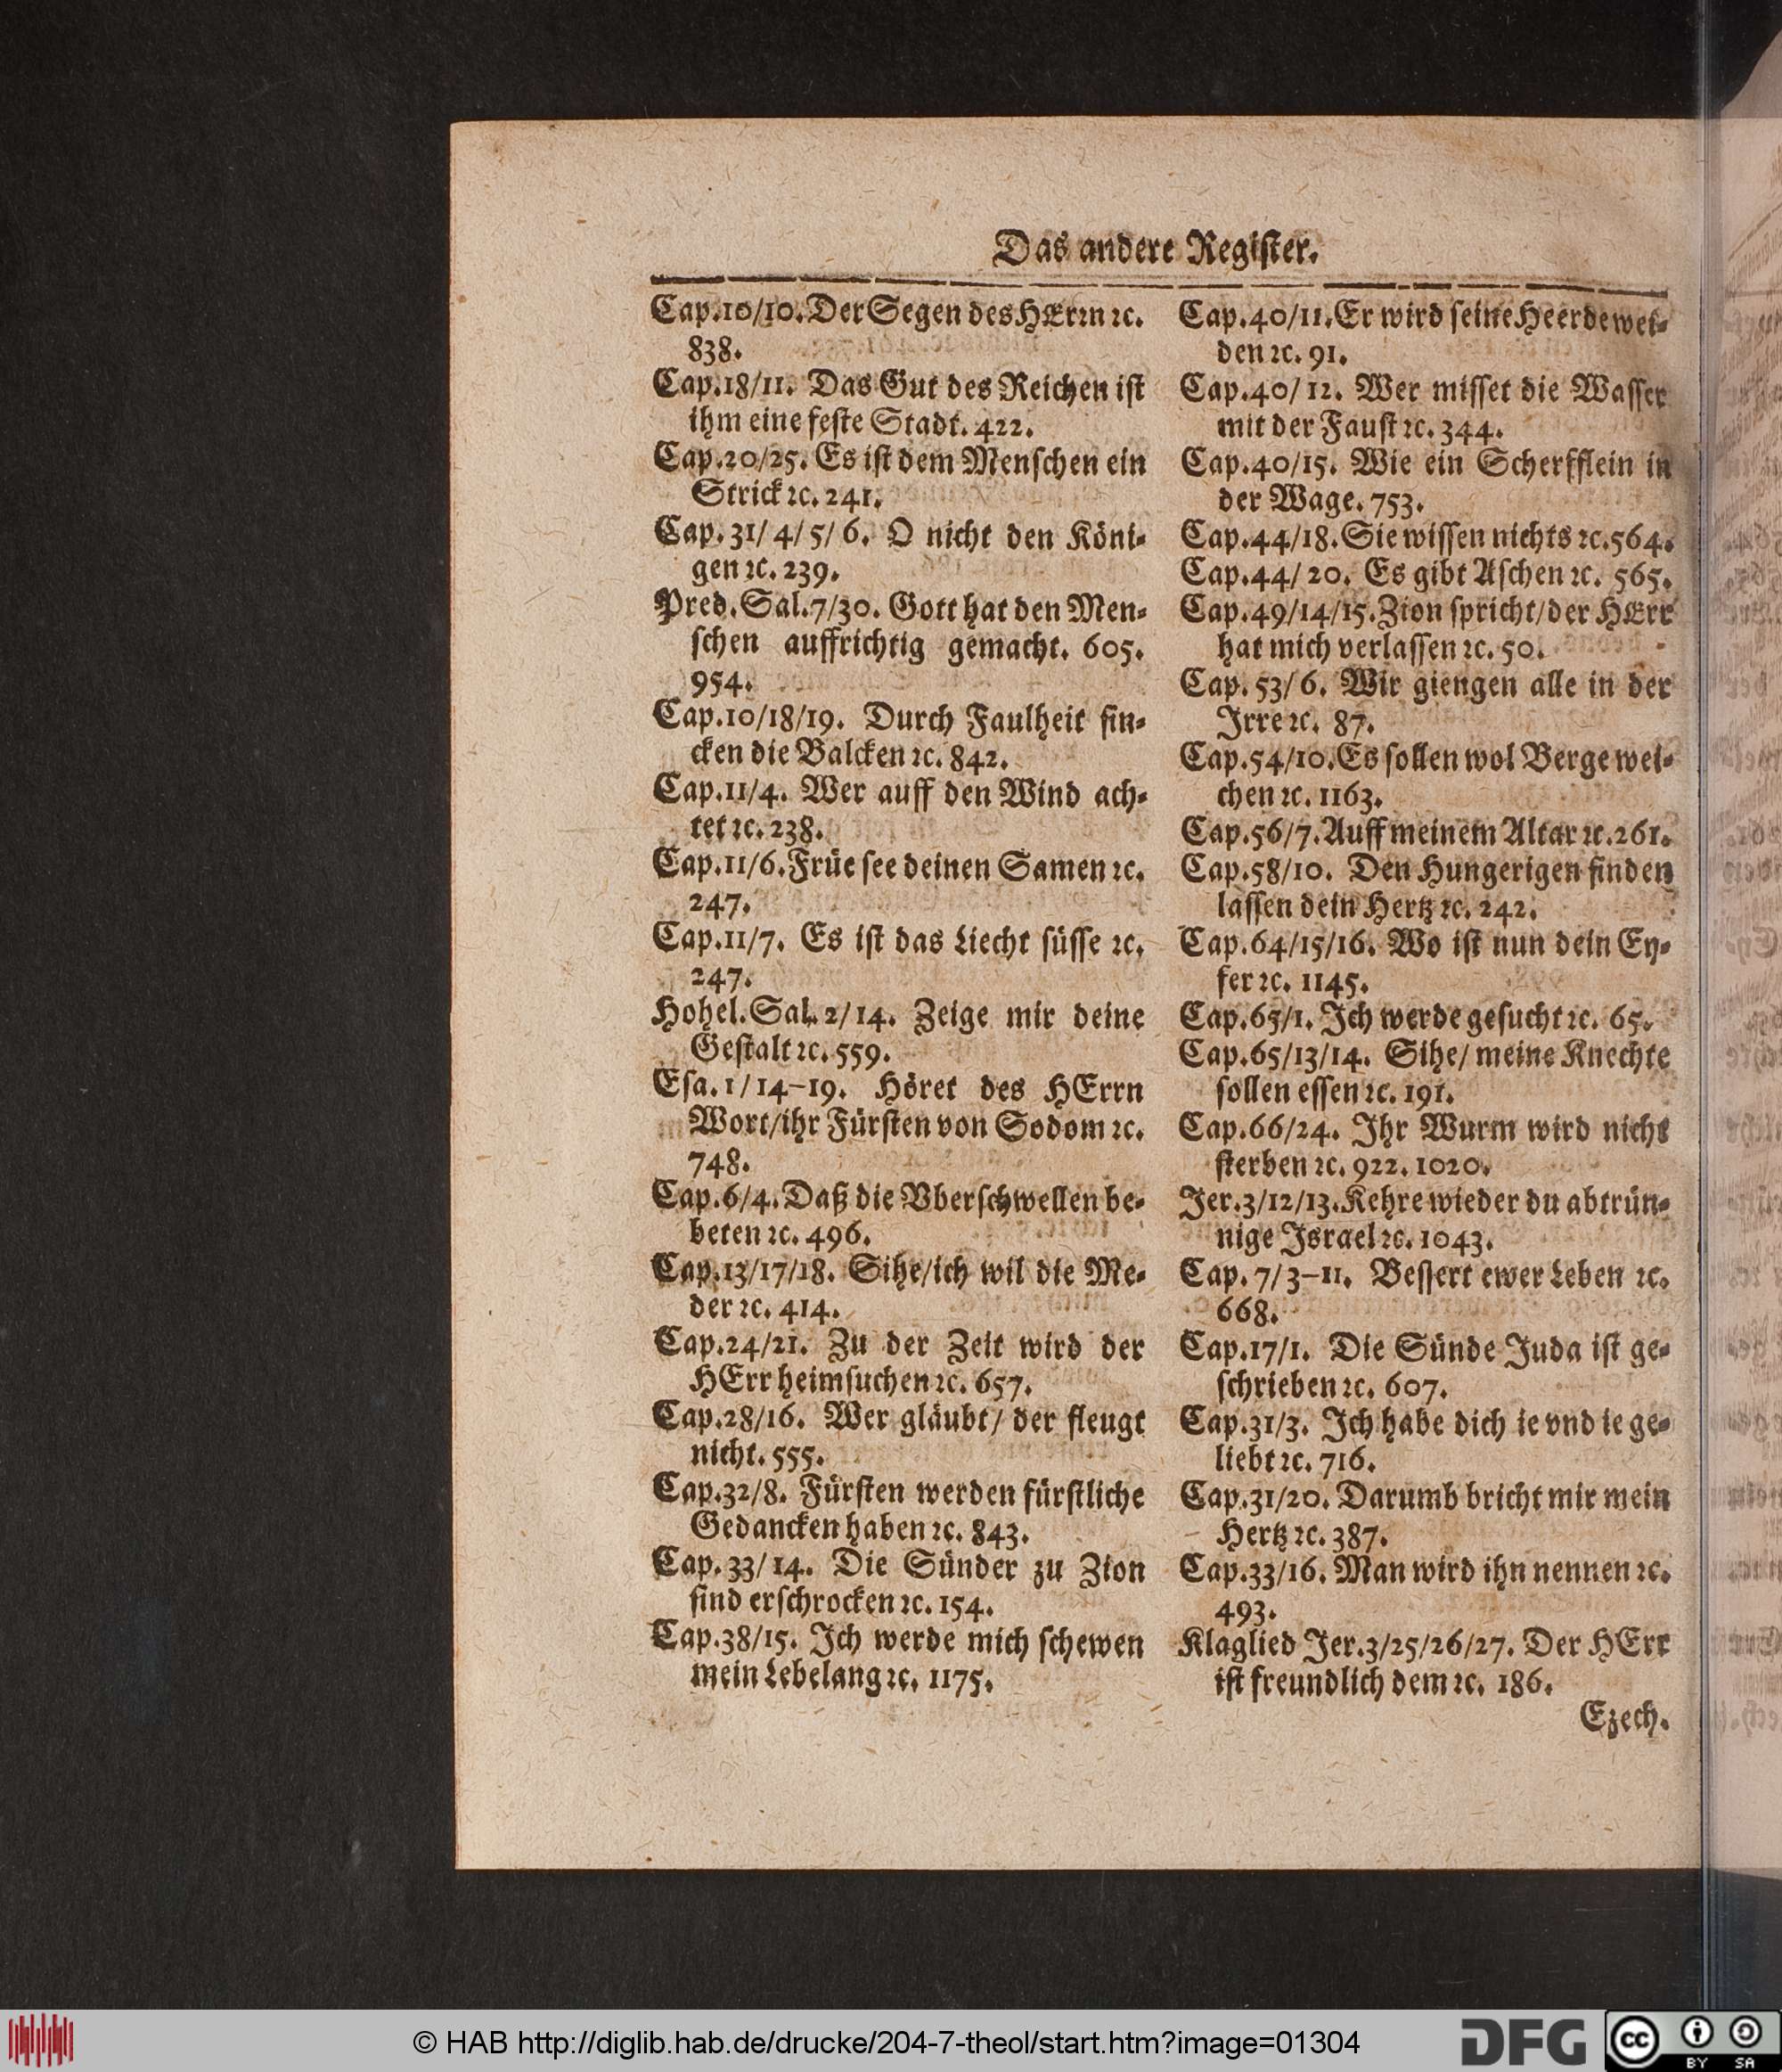 Das andere Register.
Cap.10/10. Der Segen des HErrn ꝛc.
838.
Cap.18/11. Das Gut des Reichen ist
ihm eine feste Stadt. 422.
Cap.20/25. Es ist dem Menschen ein
Strick ꝛc. 241.
Cap. 31/ 4/ 5/ 6. O nicht den Köni-
gen ꝛc. 239.
Pred. Sal. 7/30. Gott hat den Men-
schen auffrichtig gemacht. 605.
954.
Cap.10/18/19. Durch Faulheit sin-
cken die Balcken ꝛc. 842.
Cap.11/4. Wer auff den Wind ach-
tet ꝛc. 238.
Cap.11/6. Früe see deinen Samen ꝛc.
247.
Cap.11/7. Es ist das Liecht süsse ꝛc.
247.
Hohel. Sal. 2/14. Zeige mir deine
Gestalt ꝛc. 559.
Esa. 1/14-19. Höret des HErrn
Wort/ihr Fürsten von Sodom ꝛc.
748.
Cap.6/4. Daß die Vberschwellen be-
beten ꝛc. 496.
Cap.13/17/18. Sihe/ich wil die Me-
der ꝛc. 414.
Cap.24/21. Zu der Zeit wird der
HErr heimsuchen ꝛc. 657.
Cap.28/16. Wer gläubt/ der fleugt
nicht. 555.
Cap.32/8. Fürsten werden fürstliche
Gedancken haben ꝛc. 843.
Cap. 33/14. Die Sünder zu Zion
sind erschrocken ꝛc. 154.
Cap.38/15. Ich werde mich schewen
mein Lebelang ꝛc. 1175.
Cap.40/11. Er wird seine Heerde wei-
den ꝛc. 91.
Cap.40/12. Wer misset die Wasser
mit der Faust ꝛc. 344.
Cap.40/15. Wie ein Scherfflein in
der Wage. 753.
Cap.44/18. Sie wissen nichts ꝛc. 564.
Cap.44/20. Es gibt Aschen ꝛc. 565.
Cap.49/14/15. Zion spricht/der HErr
hat mich verlassen ꝛc. 50.
Cap. 53/6. Wir giengen alle in der
Irre ꝛc. 87.
Cap.54/10. Es sollen wol Berge wei-
chen ꝛc. 1163.
Cap.56/7. Auff meinem Altar ꝛc. 261.
Cap.58/10. Den Hungerigen finden
lassen dein Hertz ꝛc. 242.
Cap.64/15/16. Wo ist nun dein Ey-
fer ꝛc. 1145.
Cap.65/1. Ich werde gesucht ꝛc. 65.
Cap.65/13/14. Sihe/ meine Knechte
sollen essen ꝛc. 191.
Cap.66/24. Ihr Wurm wird nicht
sterben ꝛc. 922. 1020.
Jer.3/12/13. Kehre wieder du abtrün-
nige Israel ꝛc. 1043.
Cap. 7/3-11. Bessert ewer Leben ꝛc.
668.
Cap.17/1. Die Sünde Juda ist ge-
schrieben ꝛc. 607.
Cap.31/3. Ich habe dich ie vnd ie ge-
liebt ꝛc. 716.
Cap.31/20. Darumb bricht mir mein
Hertz ꝛc. 387.
Cap.33/16. Man wird ihn nennen ꝛc.
493.
Klaglied Jer.3/25/26/27. Der HErr
ist freundlich dem ꝛc. 186.
Ezech.
© HAB http://diglib.hab.de/drucke/204-7-theol/start.htm?image=01304
DFG
cc
BY SA